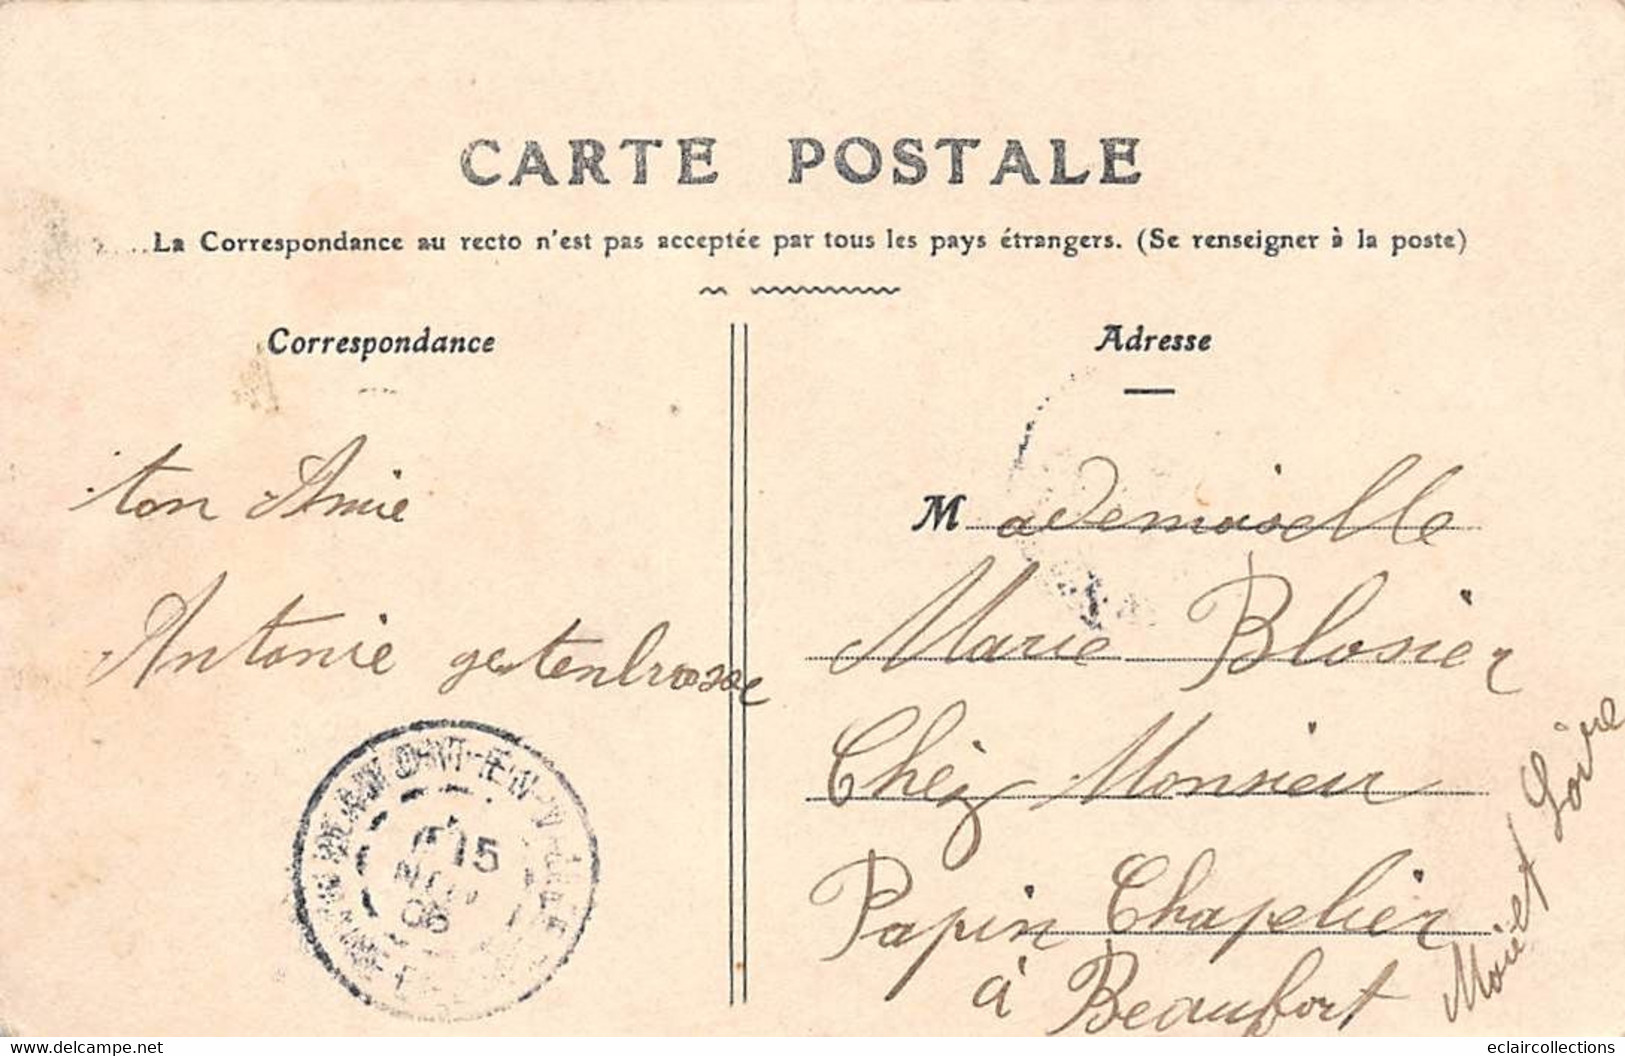 CARTE POSTALE
La Correspondance au recto n'est pas acceptée par tous les pays étrangers. (Se renseigner à la poste)
Correspondance
ton Amie
Antonie
Adresse
Mademoiselle
Marie Blosier
Chèz Monsieur
Papin Chapelier
à Beaufort
Loire
15
NOV
06
delcampe.net
marcoeric
eclaircollections